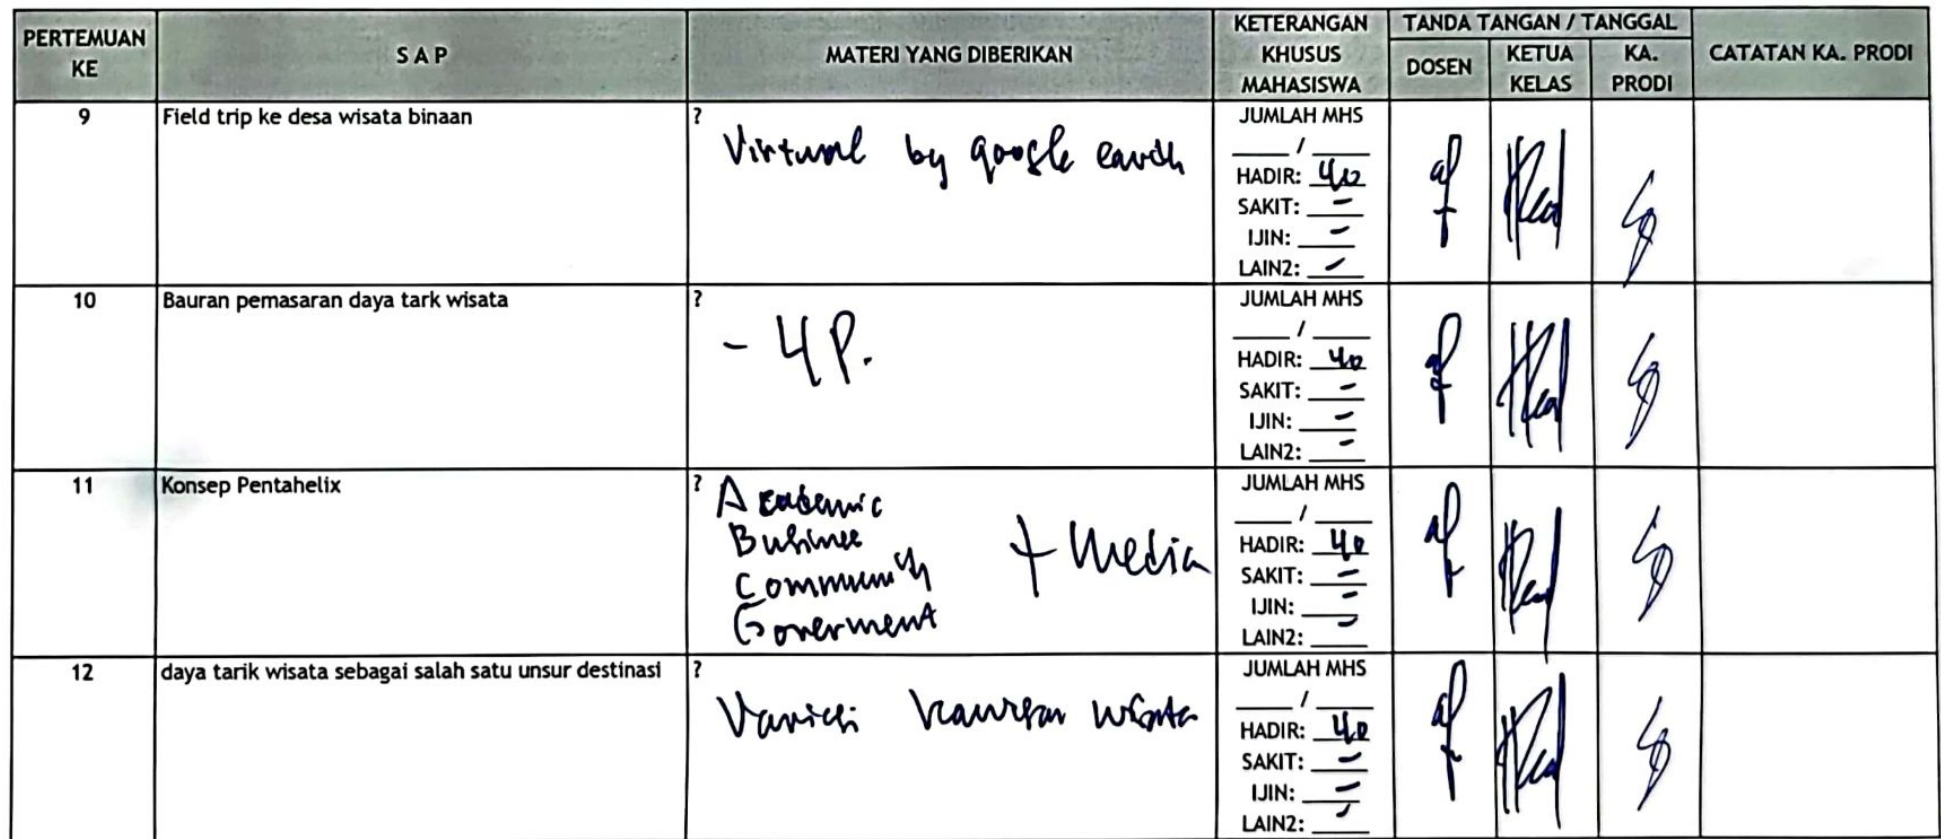 PERTEMUAN KE
S A P
MATERI YANG DIBERIKAN
KETERANGAN KHUSUS MAHASISWA
TANDA TANGAN / TANGGAL
DOSEN
KETUA KELAS
KA. PRODI
CATATAN KA. PRODI
9
Field trip ke desa wisata binaan
?
Virtual by google earth
JUMLAH MHS
___ / ___
HADIR: 40
SAKIT: -
IJIN: -
LAIN2: -
10
Bauran pemasaran daya tark wisata
?
- 4P.
JUMLAH MHS
___ / ___
HADIR: 40
SAKIT: -
IJIN: -
LAIN2: -
11
Konsep Pentahelix
?
Academic
Businee
Community
Goverment
+ Media
JUMLAH MHS
___ / ___
HADIR: 40
SAKIT: -
IJIN: -
LAIN2: -
12
daya tarik wisata sebagai salah satu unsur destinasi
?
Variasi kawasan wisata
JUMLAH MHS
___ / ___
HADIR: 40
SAKIT: -
IJIN: -
LAIN2: -